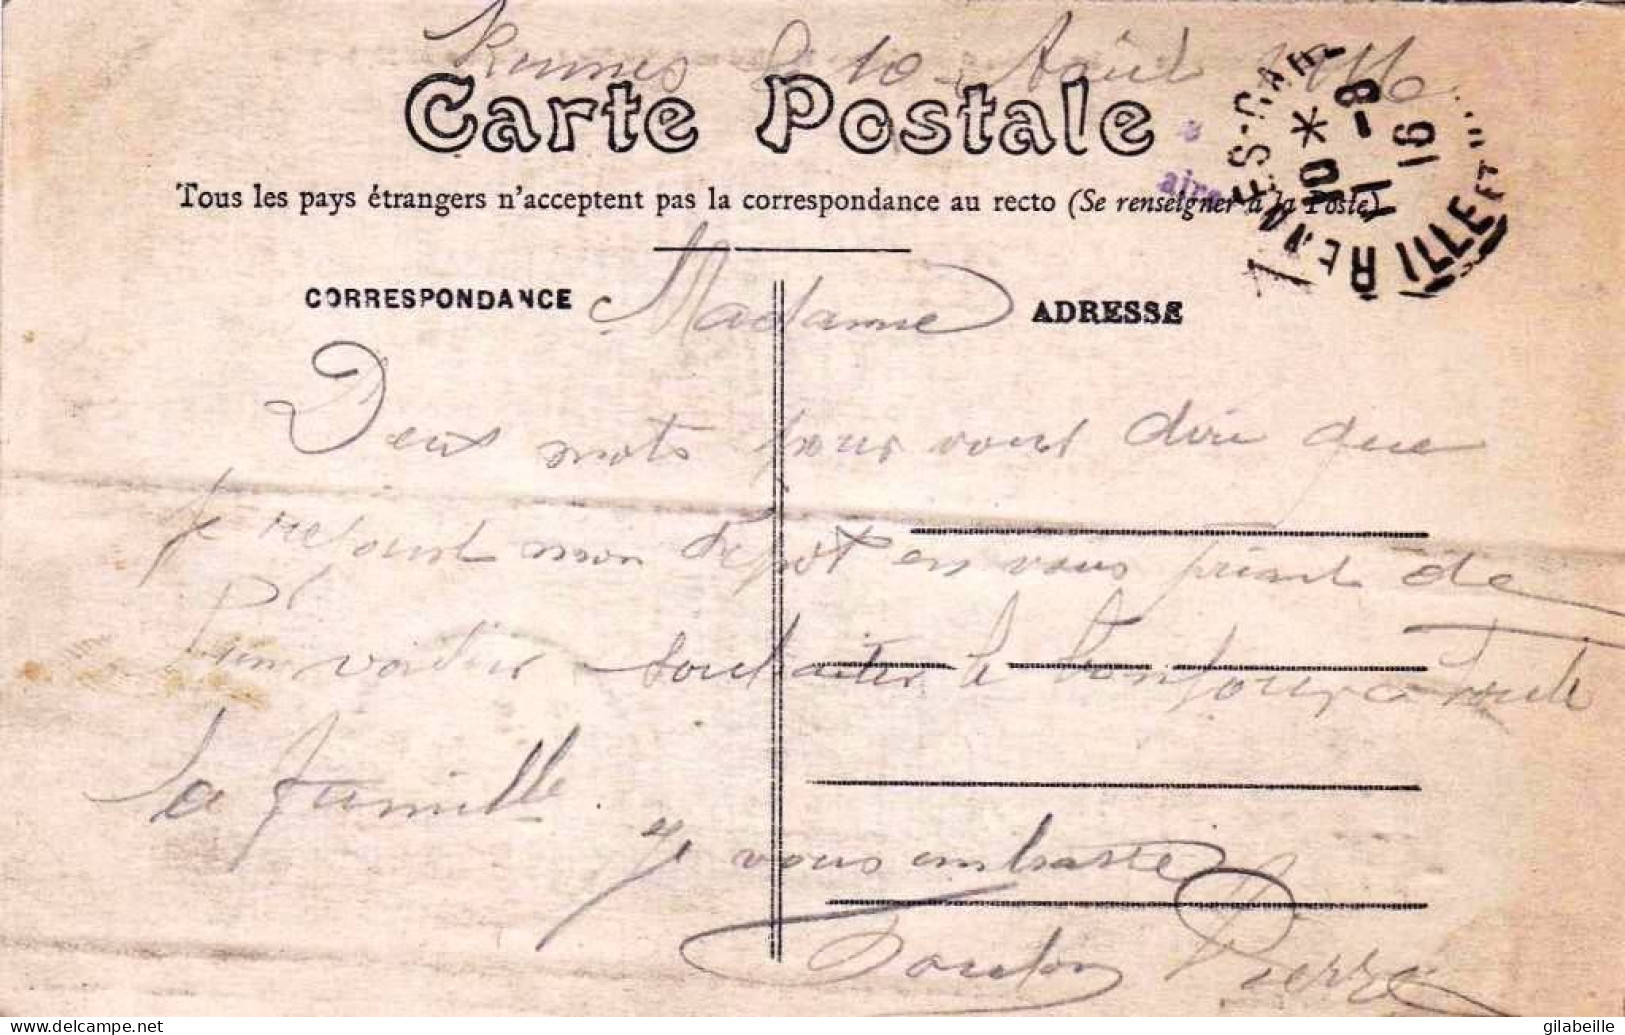 Rennes le 10 Août 1916
Carte Postale
Tous les pays étrangers n'acceptent pas la correspondance au recto (Se renseigner à la Poste)
aire
RENNES-GARE
10* 8-11 16
ILLE ET
CORRESPONDANCE
ADRESSE
Madame
Deux mots pour vous dire que
je rejoint mon depot en vous priant de
voulur souhaiter le bonjour a toute
la famille.
Je vous embrasse
Pierre
www.delcampe.net
gilabeille